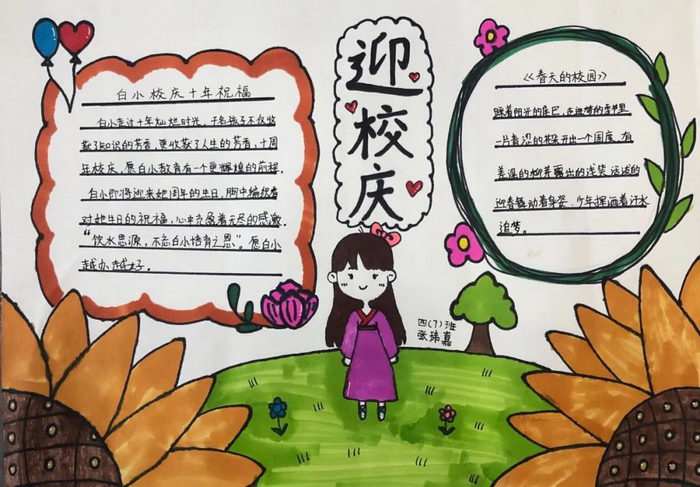 迎校庆
白小校庆十年祝福
白小走过十年灿烂时光，千名孩子不仅收
获了知识的芳香，更收获了人生的芳香，十周
年校庆，愿白小教育有一个更辉煌的前程。
白小即将迎来她周年的生日，胸中编织着
对她生日的祝福，心中充盈着无尽的感激。
“饮水思源，不忘白小培育之恩”。愿白小
越办越好。
《春天的校园》
踩着阳光的尾巴，在逝梦的季节里
一片青涩的
开出一个国度，有
羞涩的
露出的浅笑
的
迎春
动着身姿，少年挥洒着汗水
追梦。
四(7)班
张
嘉